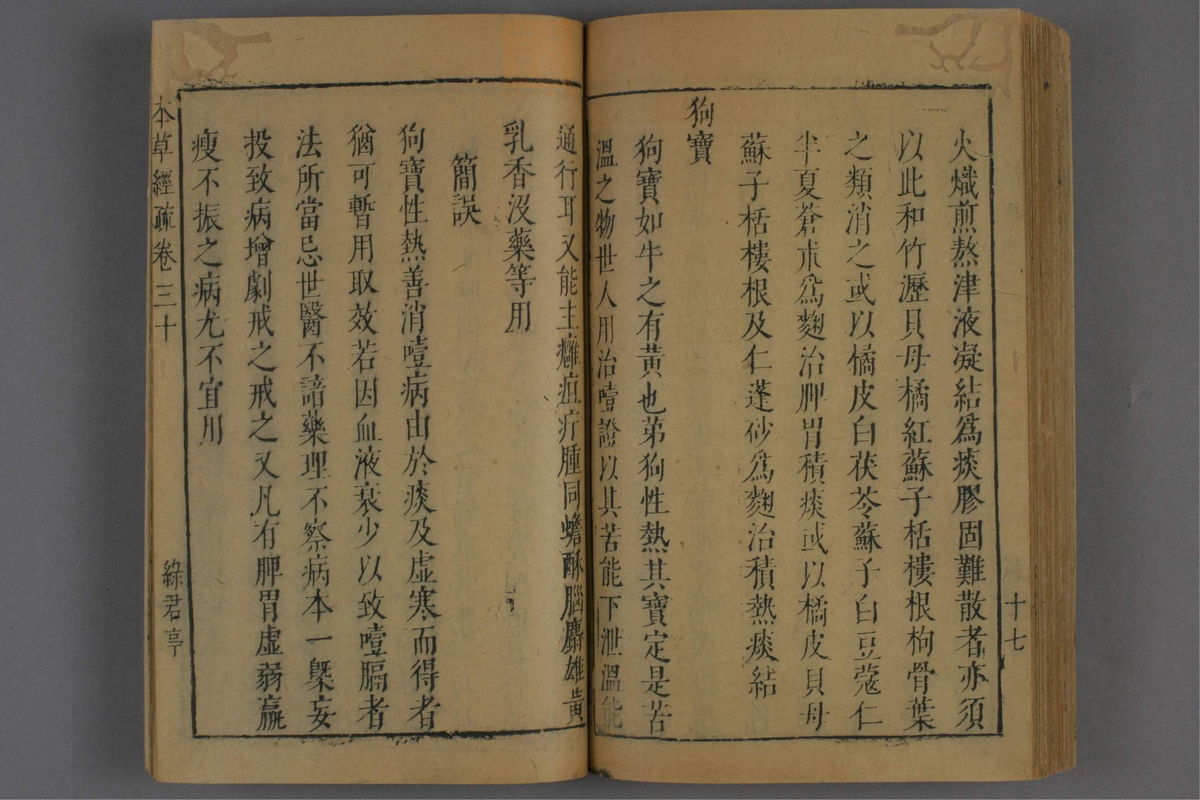 十七
火熾煎熬津液凝結爲痰膠固難散者亦須
以此和竹瀝貝母橘紅蘇子栝樓根枸骨葉
之類消之或以橘皮白茯苓蘇子白豆蔻仁
半夏蒼朮爲麴治脾胃積痰或以橘皮貝母
蘇子栝樓根及仁蓬砂爲麴治積熱痰結
狗寶
狗寶如牛之有黃也弟狗性熱其寶定是苦
溫之物世人用治噎證以其苦能下泄溫能
通行耳又能主癰疽疔腫同蟾酥腦麝雄黃
乳香沒藥等用
簡誤
狗寶性熱善消噎病由於痰及虛寒而得者
猶可暫用取效若因血液衰少以致噎膈者
法所當忌世醫不諳藥理不察病本一槩妄
投致病增劇戒之戒之又凡有脾胃虛弱羸
瘦不振之病尤不宜用
本草經疏卷三十
綠君亭